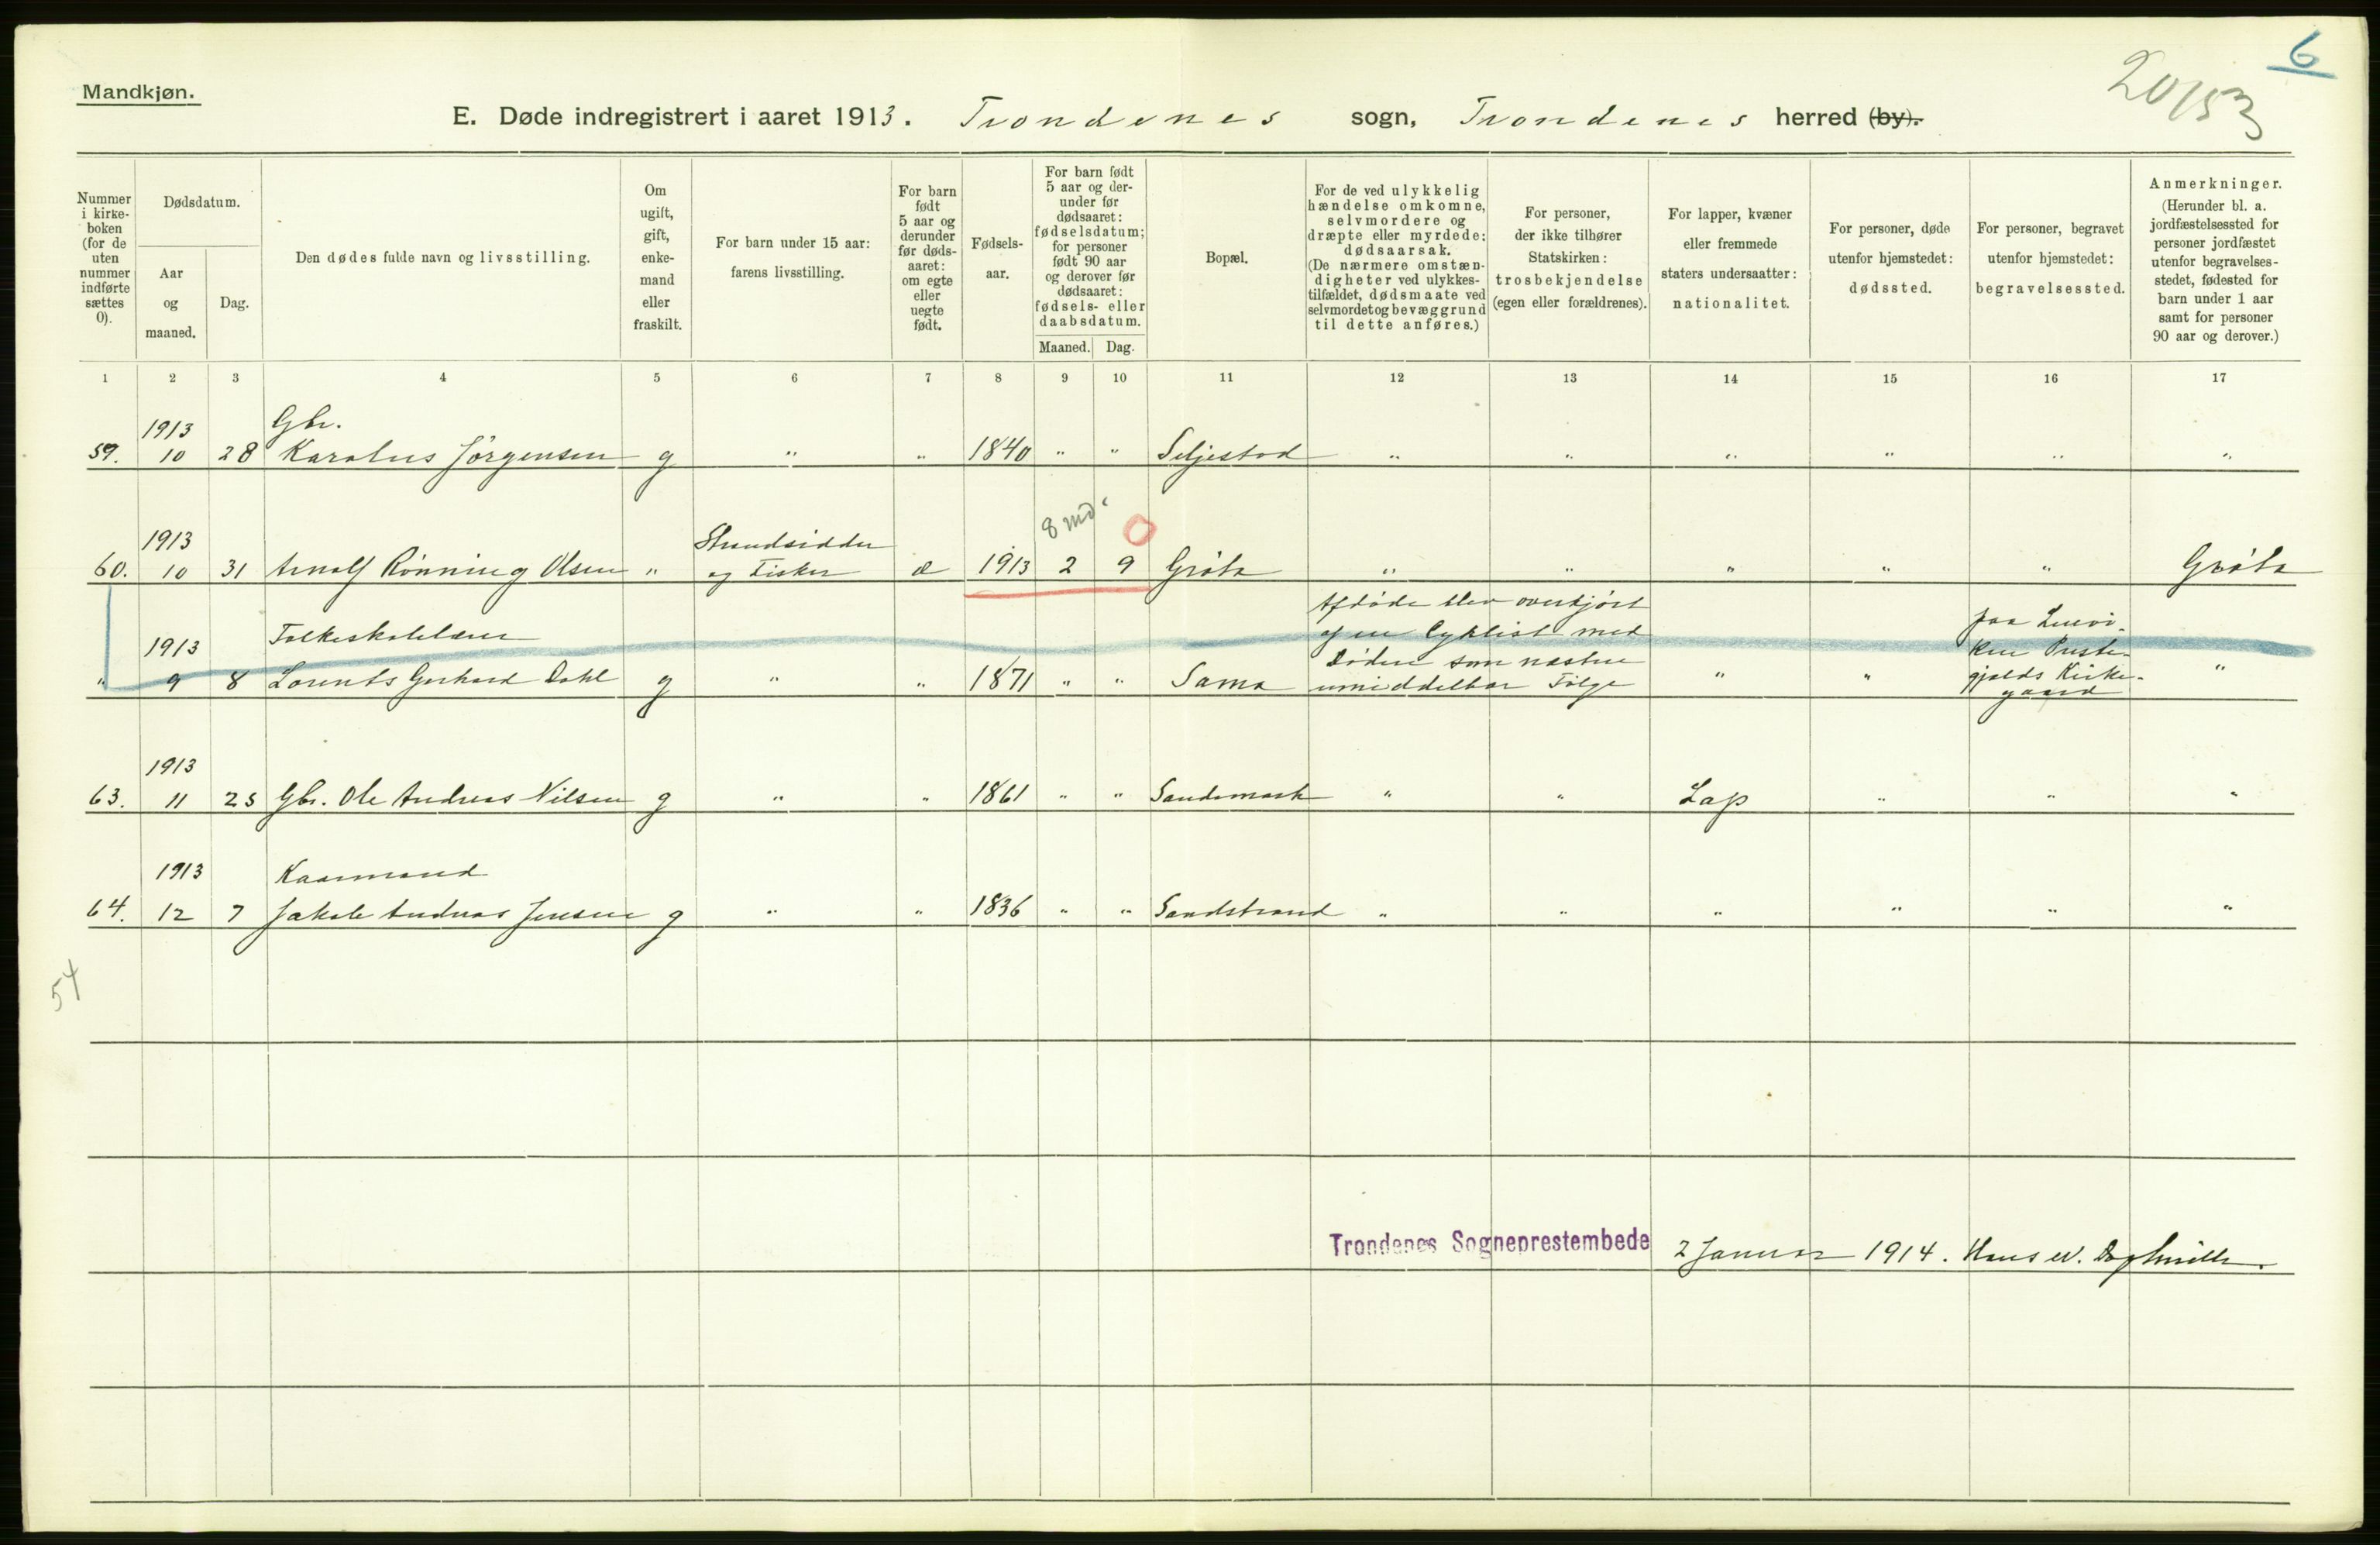 Mandkjøn.
6
20153
E. Døde indregistrert i aaret 1913. Trondenes sogn, Trondenes herred (by).
Nummer i kirke- boken (for de uten nummer indførte sættes 0).
Dødsdatum.
Aar og maaned.
Dag.
Den dødes fulde navn og livsstilling.
Om ugift, gift, enke- mand eller fraskilt.
For barn under 15 aar: farens livsstilling.
For barn født 5 aar og derunder før døds- aaret: om egte eller uegte født.
Fødsels- aar.
For barn født 5 aar og der- under før dødsaaret: fødselsdatum; for personer født 90 aar og derover før dødsaaret: fødsels- eller daabsdatum.
Maaned. Dag.
Bopæl.
For de ved ulykkelig hændelse omkomne, selvmordere og dræpte eller myrdede: dødsaarsak. (De nærmere omstæn- digheter ved ulykkes- tilfældet, dødsmaate ved selvmordet og bevæggrund til dette anføres.)
For personer, der ikke tilhører Statskirken: trosbekjendelse (egen eller forældrenes).
For lapper, kvæner eller fremmede staters undersaatter: nationalitet.
For personer, døde utenfor hjemstedet: dødssted.
For personer, begravet utenfor hjemstedet: begravelsessted.
Anmerkninger. (Herunder bl. a. jordfæstelsessted for personer jordfæstet utenfor begravelses- stedet, fødested for barn under 1 aar samt for personer 90 aar og derover.)
1 2 3 4 5 6 7 8 9 10 11 12 13 14 15 16 17
1913 Gbr.
59. 10 28 Karolus Jörgensen g " " 1840 " " Seljestad " " " " " "
8 md. 0
1913 Strandsidder
60. 10 31 Arnolf Rönning Olsen " og Fisker e 1913 2 9 Gröta " " " " " Gröta
Afdöde blev overkjört
1913 Folkeskolelærer af en Cyklist med paa
Döden som næsten ken Preste-
" 9 8 Lorents Gerhard Dahl g " " 1871 " " Sama umiddelbar Fölge " " gjelds Kirke- "
gaard
1913
63. 11 25 Gbr. Ole Andreas Nilsen g " " 1861 " " Sandemark " " Lap " " "
1913 Kaarmand
64. 12 7 Jakob Andreas Jensen g " " 1836 " " Sandstrand " " " " " "
54
Trondenes Sogneprestembede 2 Januar 1914. Hans